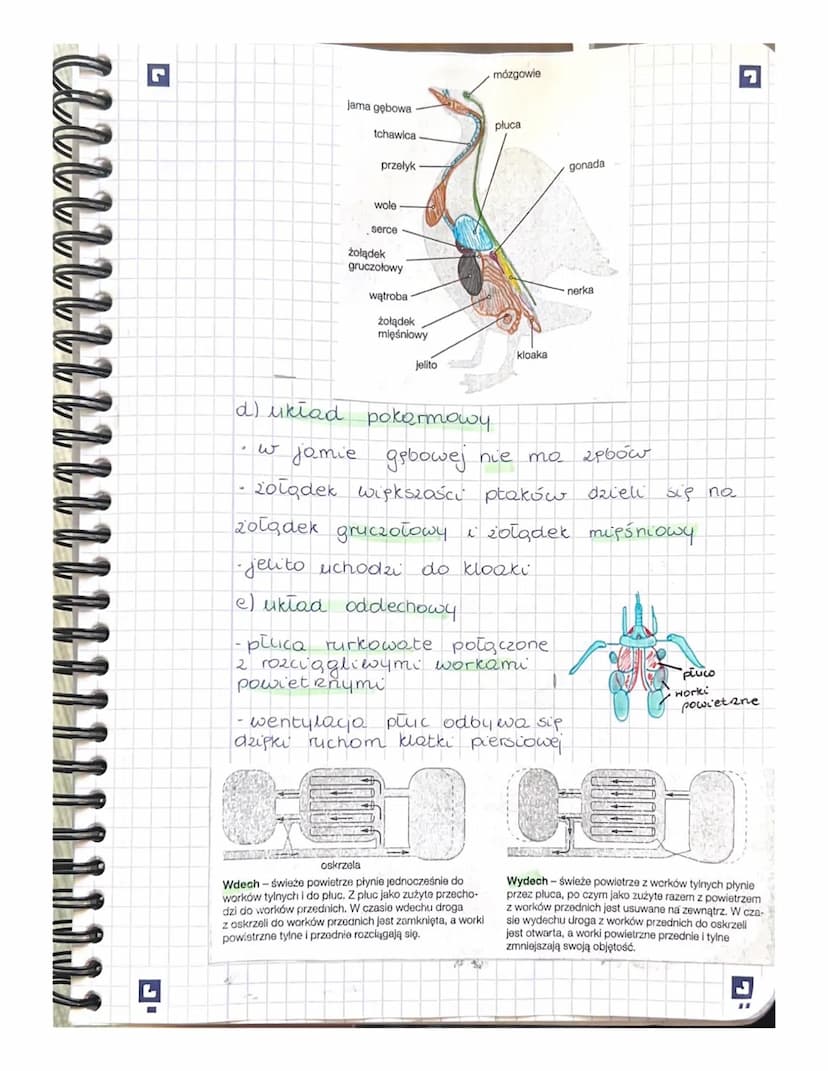 mózgowie
jama gębowa
płuca
tchawica
gonada
przełyk
wole
serce
żołądek
gruczołowy
nerka
wątroba
żołądek
mięśniowy
kloaka
jelito
d) układ pokarmowy
· w jamie gębowej nie ma zębów
- żołądek większości ptaków dzieli się na
żołądek gruczołowy i żołądek mięśniowy
- jelito uchodzi do kloaki
e) układ oddechowy
- płuca rurkowate połączone
z rozciągliwymi workami
powietrznymi
płuco
worki
powietrzne
- wentylacja płuc odbywa się
dzięki ruchom klatki piersiowej
oskrzela
Wdech – świeże powietrze płynie jednocześnie do
worków tylnych i do płuc. Z płuc jako zużyte przecho-
dzi do worków przednich. W czasie wdechu droga
z oskrzeli do worków przednich jest zamknięta, a worki
powietrzne tylne i przednie rozciągają się.
Wydech – świeże powietrze z worków tylnych płynie
przez płuca, po czym jako zużyte razem z powietrzem
z worków przednich jest usuwane na zewnątrz. W cza-
sie wydechu droga z worków przednich do oskrzeli
jest otwarta, a worki powietrzne przednie i tylne
zmniejszają swoją objętość.